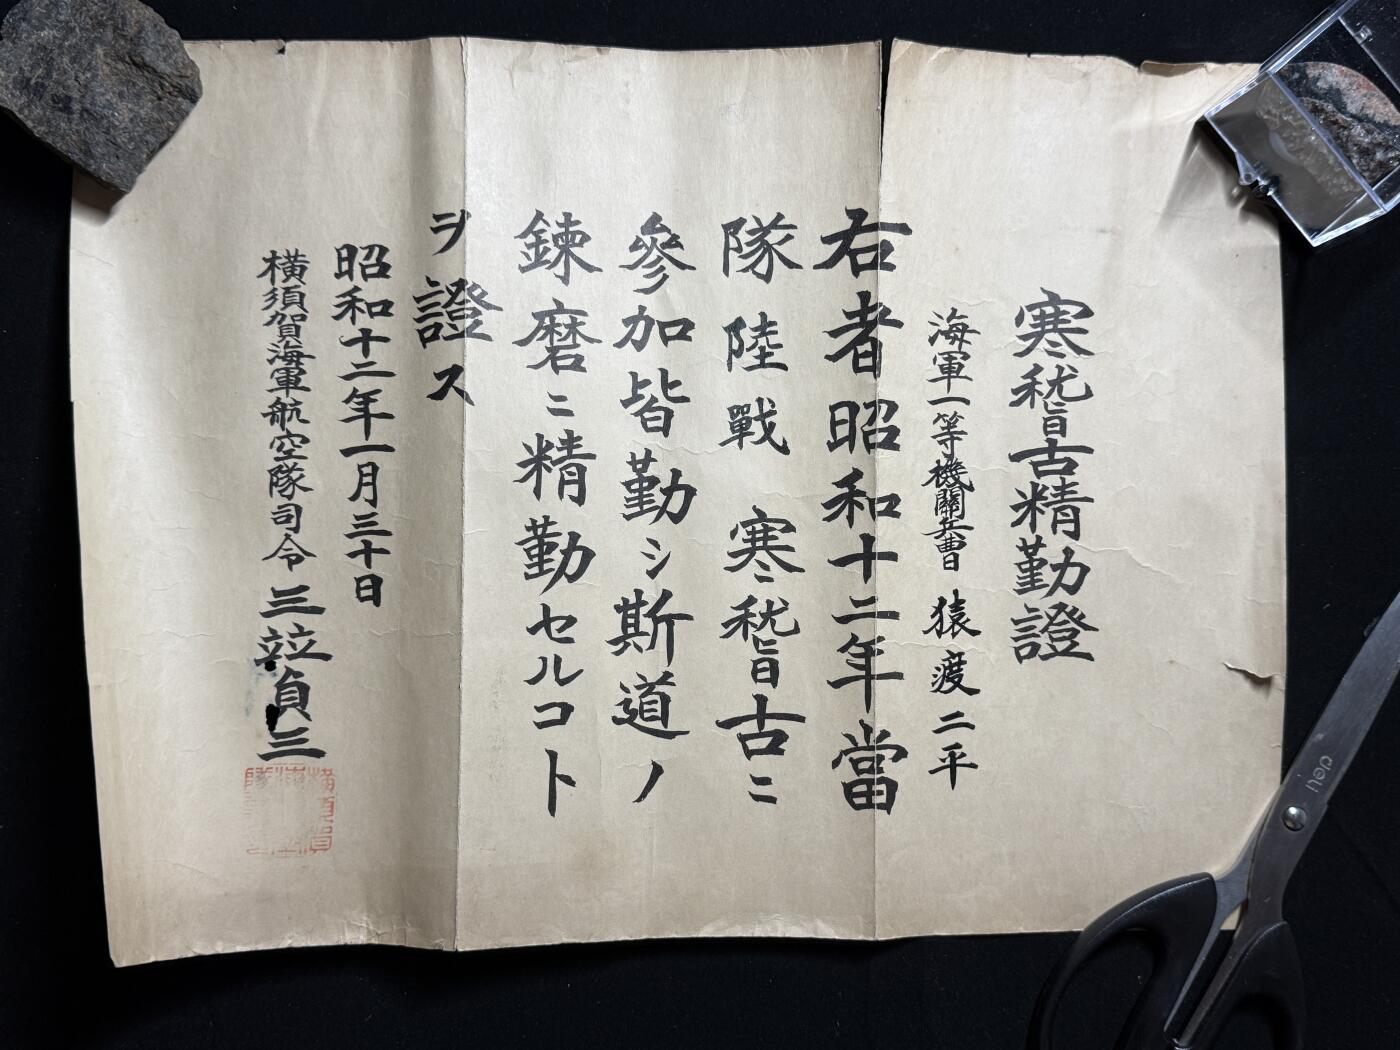 寒稽古精勤證
海軍一等機關兵曹 猿渡二平
右者昭和十二年當
隊陸戰 寒稽古ニ
參加皆勤シ斯道ノ
鍊磨ニ精勤セルコト
ヲ證ス
昭和十二年一月三十日
横須賀海軍航空隊司令 三竝貞三
deli